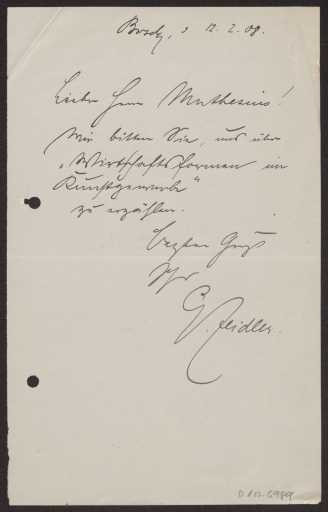 12. 2. 08.
Lieber Herr Muthesius!
Wir bitten Sie, uns über
„Wirtschaftsformen im
Kunstgewerbe“
zu erzählen.
Besten Gruß
Ihr